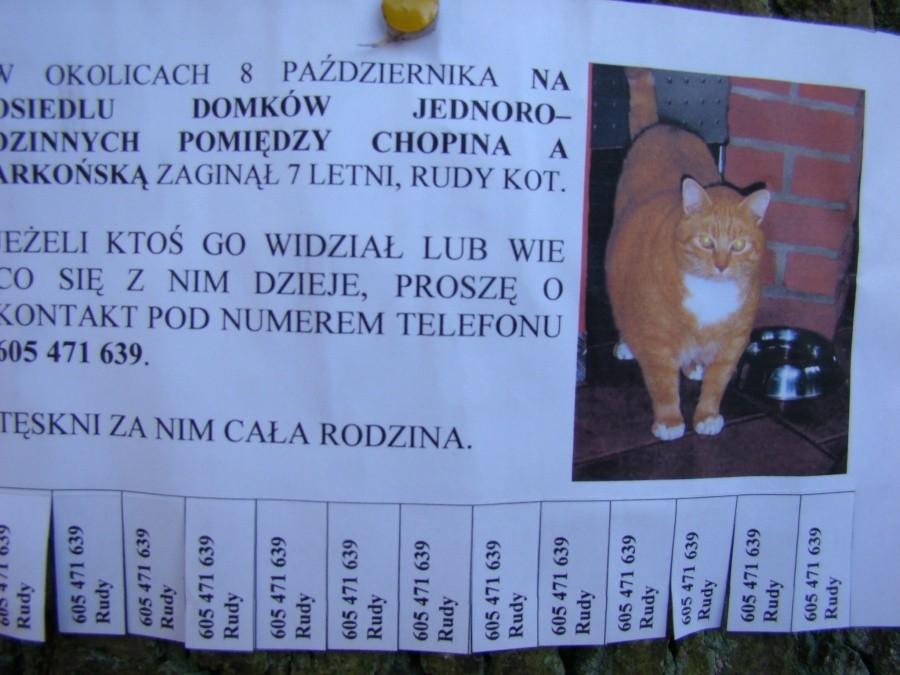 W OKOLICACH 8 PAŹDZIERNIKA NA
OSIEDLU DOMKÓW JEDNORO–
DZINNYCH POMIĘDZY CHOPINA A
ARKOŃSKĄ ZAGINĄŁ 7 LETNI, RUDY KOT.
JEŻELI KTOŚ GO WIDZIAŁ LUB WIE
CO SIĘ Z NIM DZIEJE, PROSZĘ O
KONTAKT POD NUMEREM TELEFONU
605 471 639.
TĘSKNI ZA NIM CAŁA RODZINA.
605 471 639
Rudy
605 471 639
Rudy
605 471 639
Rudy
605 471 639
Rudy
605 471 639
Rudy
605 471 639
Rudy
605 471 639
Rudy
605 471 639
Rudy
605 471 639
Rudy
605 471 639
Rudy
605 471 639
Rudy
605 471 639
Rudy
605 471 639
Rudy